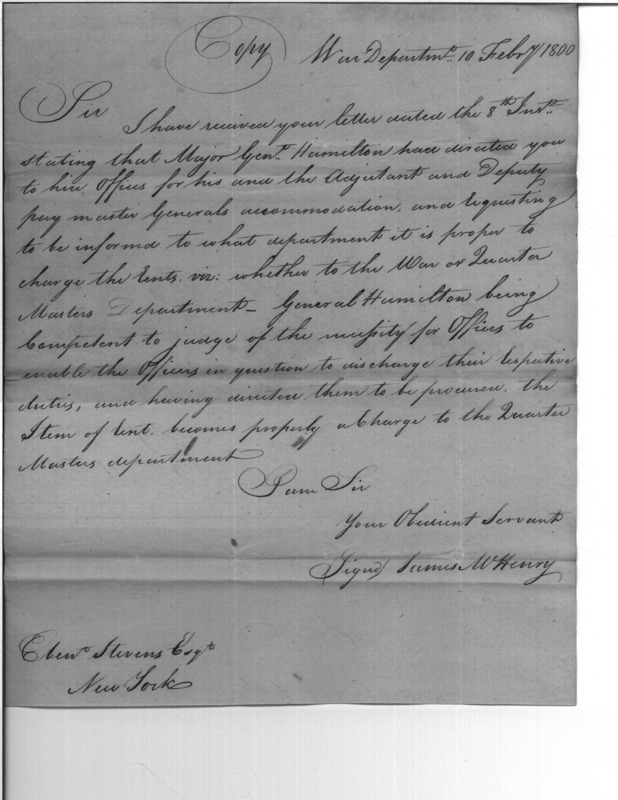 Copy
War Departmt. 10 Febry 1800
Sir
I have received your letter dated the 8th Inst.
stating that Major Genl. Hamilton had directed you
to hire Offices for his and the Adjutant and Deputy
pay master Generals accommodation, and requesting
to be informed to what department it is proper to
charge the rents. viz: whether to the War or Quarter
Masters Department – General Hamilton being
Competent to judge of the necessity for Offices to
enable the Officers in question to discharge their respective
duties, and having directed them to be procured, the
Item of rent. becomes properly a Charge to the Quarter
Masters department
I am Sir
Your Obedient Servant
Signd James McHenry
Ebenr. Stevens Esqr.
New York